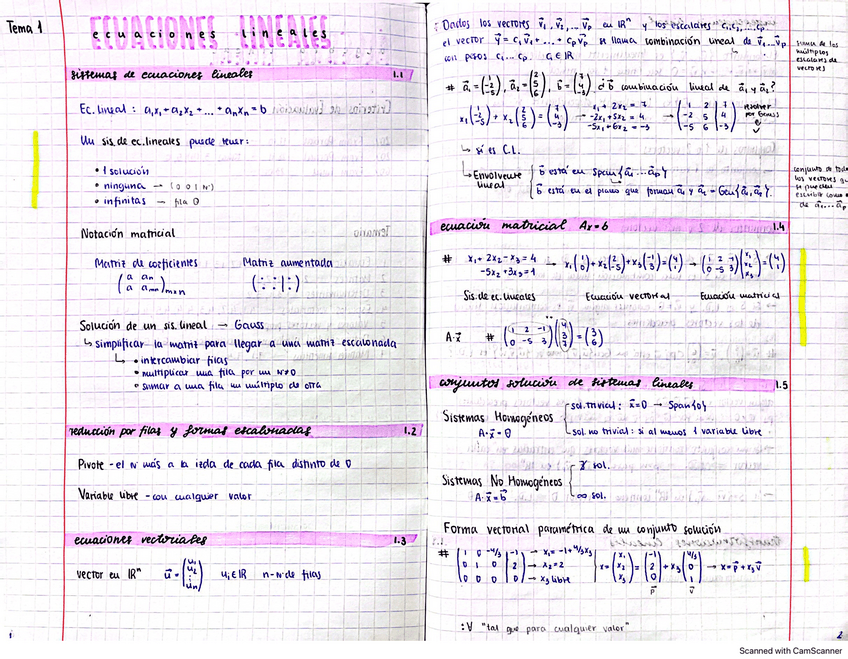 Tema 1
ECUACIONES LINEALES
ecuaciones lineales
sistemas de ecuaciones lineales 1.1
Ec. lineal: a₁x₁ + a₂x₂ + ... + aₙxₙ = b
Un sis. de ec. lineales puede tener:
• 1 solución
• ninguna → (0 0 | N)
• infinitas → fila 0
Notación matricial
Matriz de coeficientes Matriz aumentada
(a aₙ
a aₘₙ)ₘₓₙ (: : | :)
Solución de un sis. lineal → Gauss
↳ simplificar la matriz para llegar a una matriz escalonada
↳ • intercambiar filas
• multiplicar una fila por un N≠0
• sumar a una fila un múltiplo de otra
reducción por filas y formas escalonadas 1.2
Pivote - el N más a la izda de cada fila distinto de 0
Variable libre - con cualquier valor
ecuaciones vectoriales 1.3
vector en ℝⁿ u⃗ = (u₁ u₂ ⋮ uₙ) uᵢ ∈ ℝ n - N de filas
1
Dados los vectores v⃗₁, v⃗₂, ... v⃗p en ℝⁿ y los escalares c₁, c₂, ... cp
el vector y⃗ = c₁v⃗₁ + ... + cpv⃗p se llama combinación lineal de v⃗₁...v⃗p
con pesos c₁...cp. cᵢ∈ℝ
suma de los
múltiplos
escalares de
vectores
# a⃗₁ = (1 -2 -5), a⃗₂ = (2 5 6), b⃗ = (7 4 -3) ¿b⃗ combinación lineal de a⃗₁ y a⃗₂?
x₁(1 -2 -5) + x₂(2 5 6) = (7 4 -3) → x₁ + 2x₂ = 7
-2x₁ + 5x₂ = 4
-5x₁ + 6x₂ = -3 → (1 2 | 7
-2 5 | 4
-5 6 | -3) resolver
por Gauss
↳ sí es C.L.
↳ Envolvente lineal
b⃗ está en Span{a⃗₁...a⃗p}
b⃗ está en el plano que forman a⃗₁ y a⃗₂ = Gen{a⃗₁, a⃗₂}.
conjunto de todos
los vectores que
se pueden
escribir como
de a⃗₁...a⃗p
ecuación matricial Ax=b 1.4
# x₁ + 2x₂ - x₃ = 4
-5x₂ + 3x₃ = 1 → x₁(1 0) + x₂(2 -5) + x₃(-1 3) = (4 1) → (1 2 -1
0 -5 3)(x₁ x₂ x₃) = (4 1)
Sis. de ec. lineales Ecuación vectorial Ecuación matricial
A·x⃗ # (1 2 -1
0 -5 3)(4 3 7) = (3 6)
conjuntos solución de sistemas lineales 1.5
Sistemas Homogéneos
A·x⃗ = 0
sol. trivial: x⃗=0 → Span{0}
sol. no trivial: si al menos 1 variable libre
Sistemas No Homogéneos
A·x⃗ = b⃗
∄ sol.
∞ sol.
Forma vectorial paramétrica de un conjunto solución
# (1 0 -4/3 | -1
0 1 0 | 2
0 0 0 | 0) → x₁ = -1 + 4/3 x₃
→ x₂ = 2
→ x₃ libre
x = (x₁ x₂ x₃) = (-1 2 0) + x₃(4/3 0 1) → x = p⃗ + x₃v⃗
p⃗ v⃗
: ∀ "tal que para cualquier valor"
2
Scanned with CamScanner